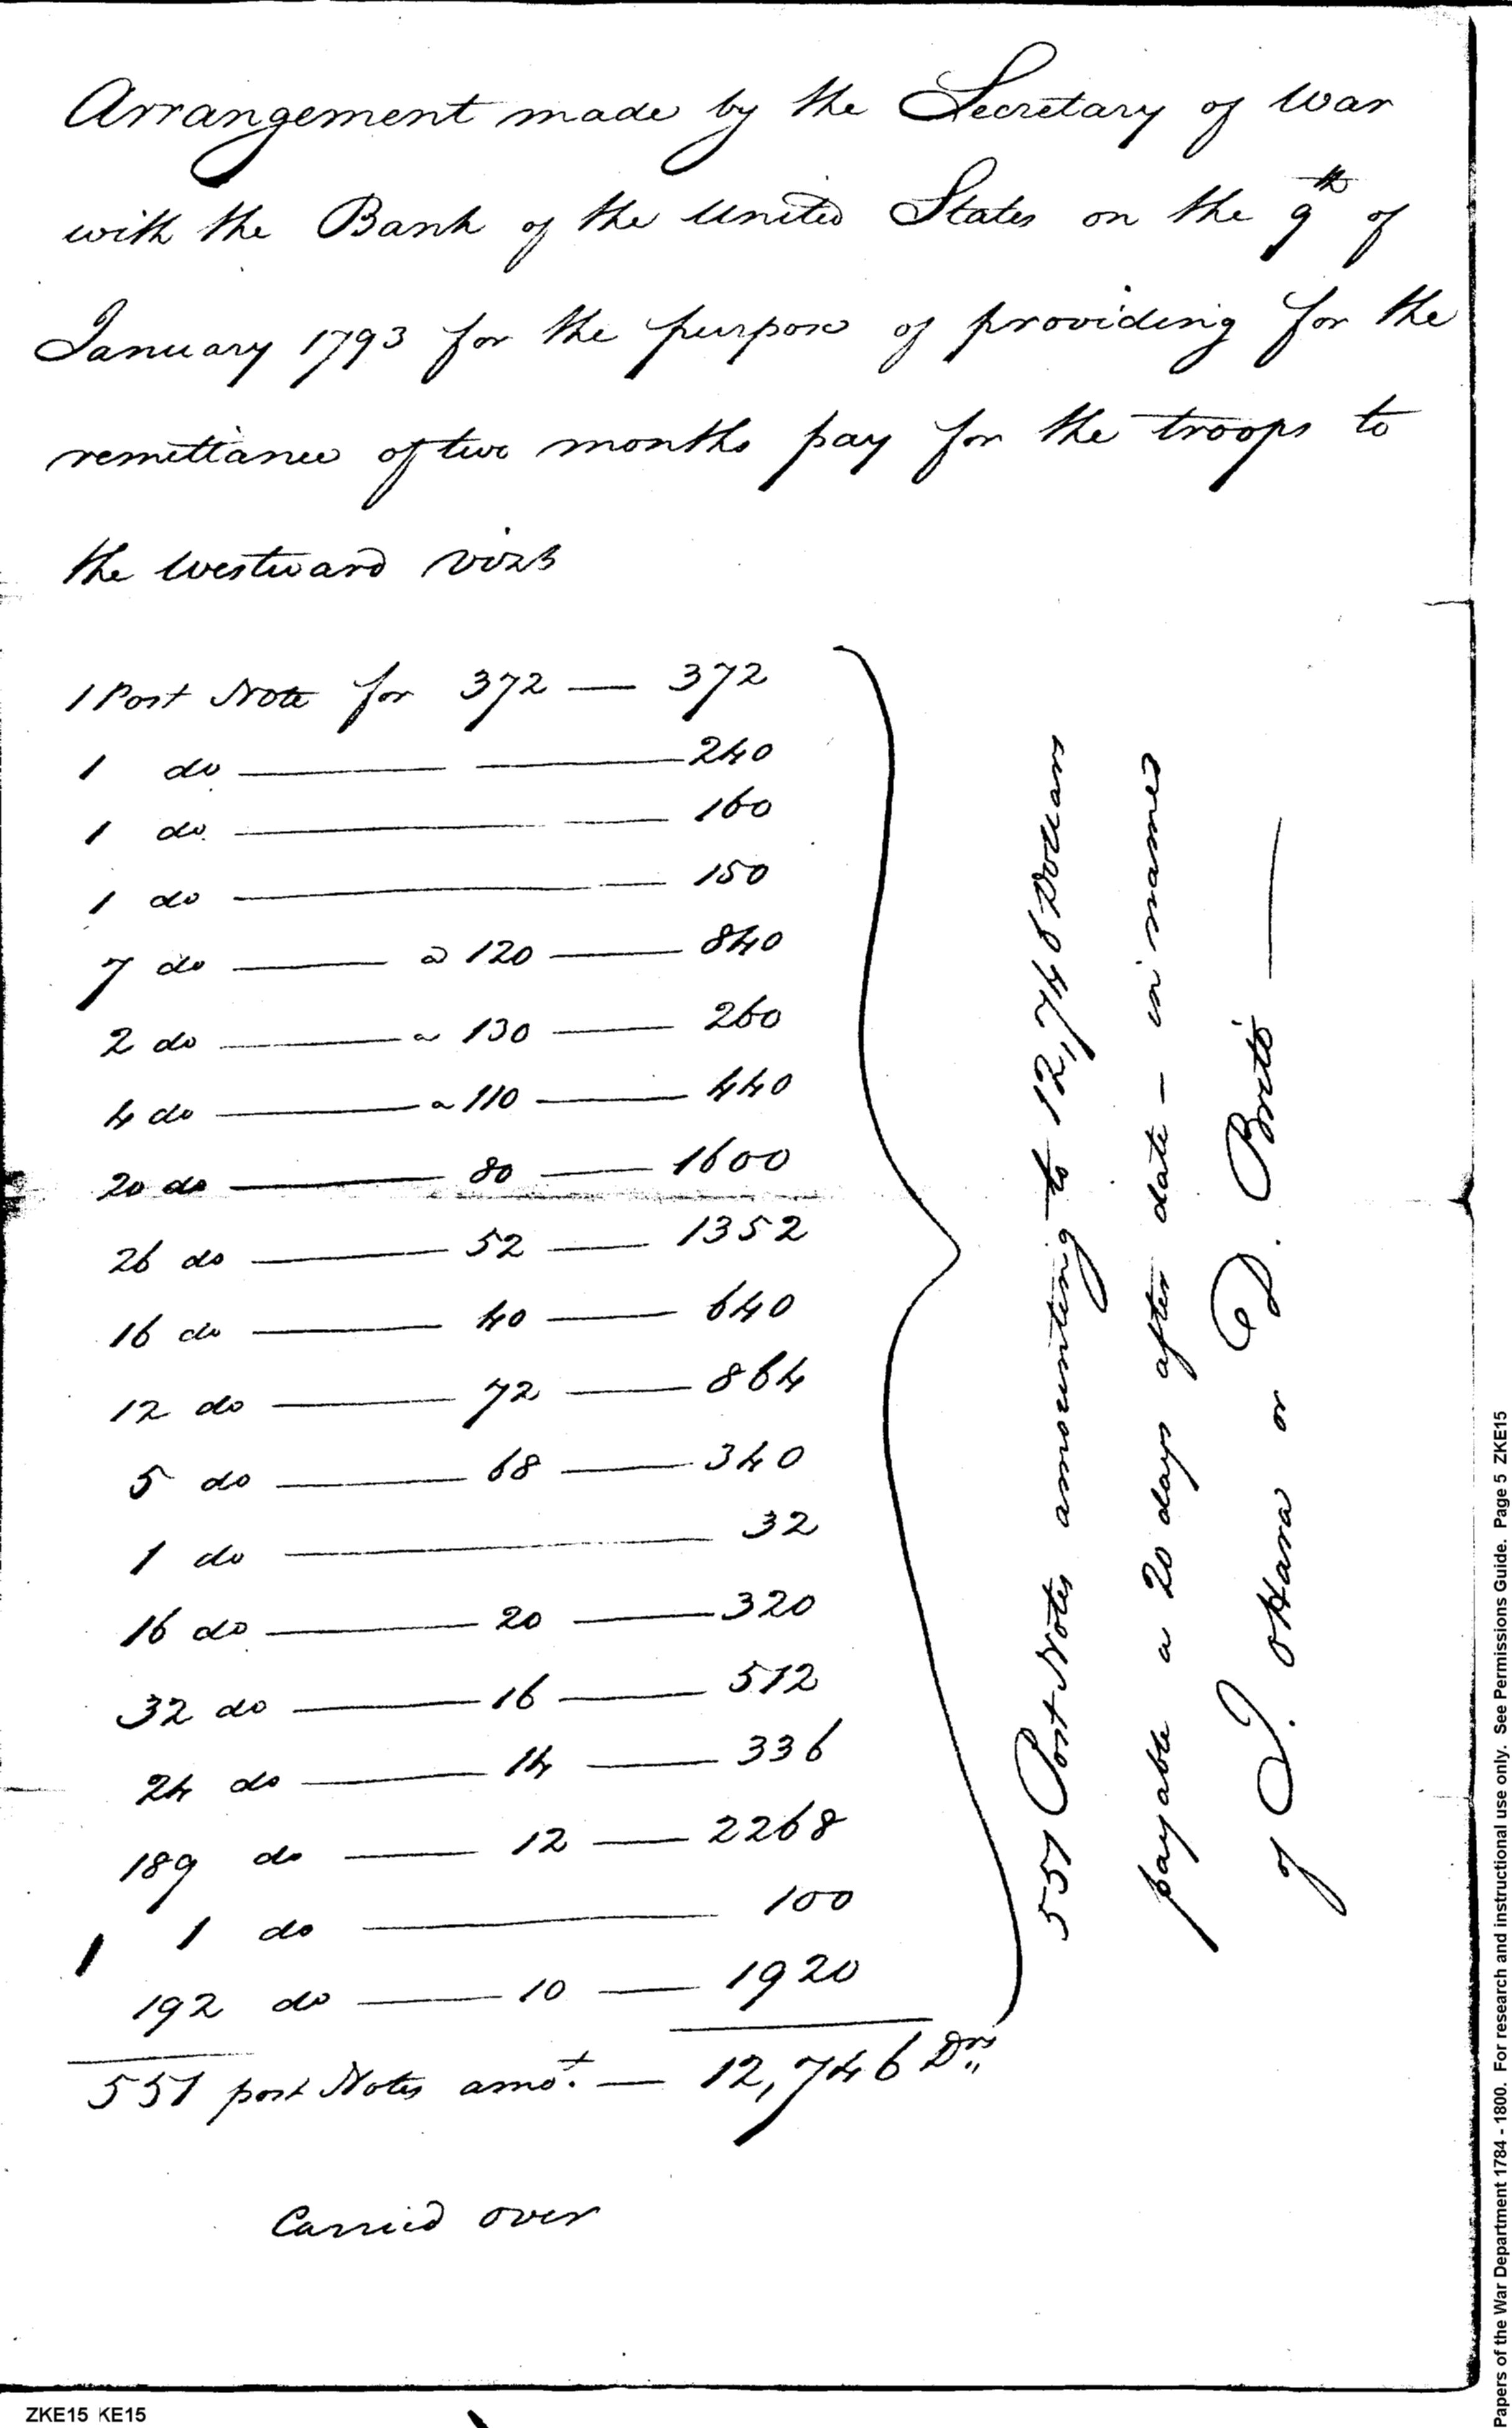 Arrangement made by the Secretary of War
with the Bank of the United States on the 9th of
January 1793 for the purpose of providing for the
remittance of two months pay for the troops to
the westward vizt
1 Post Note for 372 — 372
1 do — — 240
1 do — — 160
1 do — — 150
7 do — a 120 — 840
2 do — a 130 — 260
4 do — a 110 — 440
20 do — 80 — 1600
26 do — 52 — 1352
16 do — 40 — 640
12 do — 72 — 864
5 do — 68 — 340
1 do — 32
16 do — 20 — 320
32 do — 16 — 512
24 do — 14 — 336
189 do — 12 — 2268
1 do — 100
192 do — 10 — 1920
551 post Notes amot. — 12,746 Drs,,
Carried over
551 Post Notes amounting to 12,746 Dollars
payable a 20 days after date – in names
of J. oHara or D. Britt —
ZKE15 KE15
Papers of the War Department 1784 - 1800. For research and instructional use only. See Permissions Guide. Page 5 ZKE15